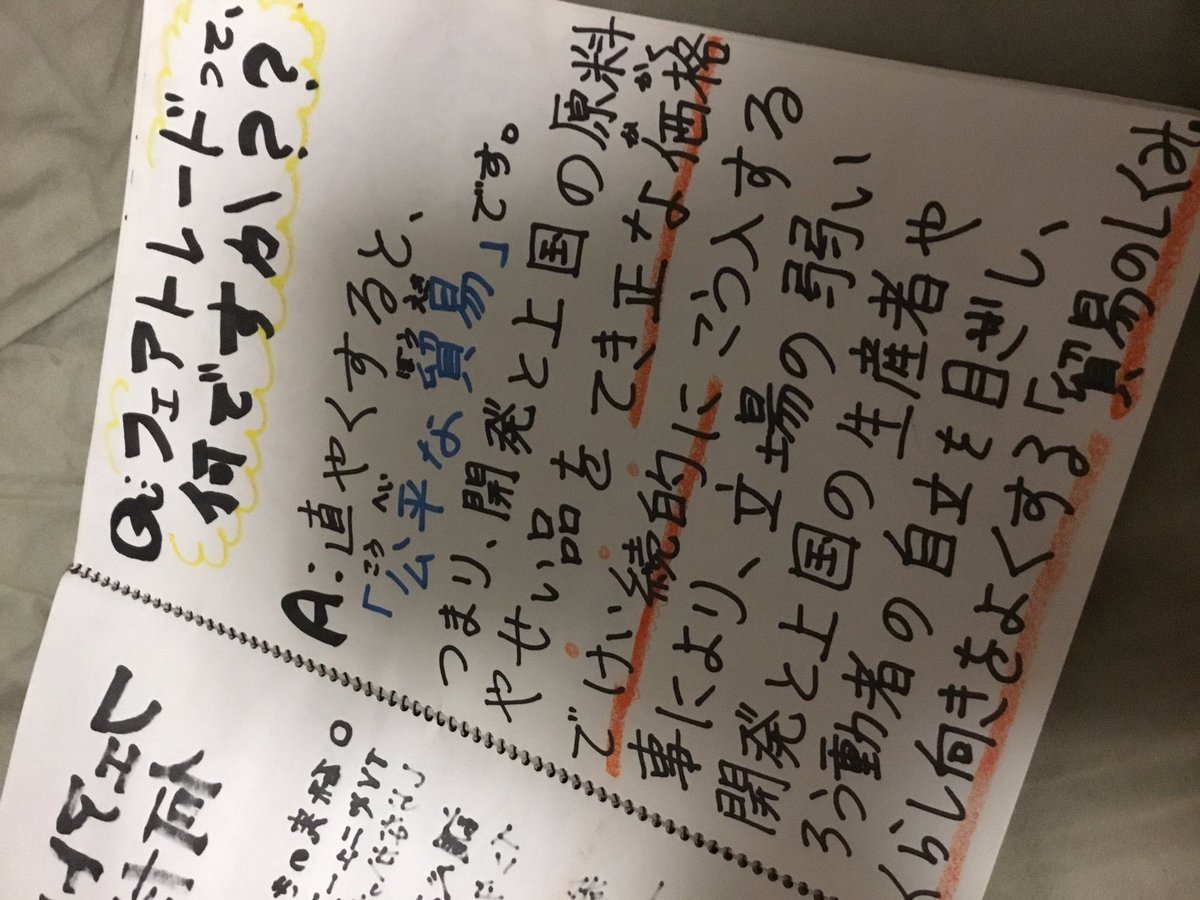 Q:フェアトレードって
何ですか??
A:直やくすると、
こうへい ぼうえき
「公平な貿易」です。
つまり、開発と上国の原料
かかく
やせい品をてき正な価格
でけい続的にこう入する
事により、立場の弱い
開発と上国の生産者や
ろう動者の自立を目ざし、
くらし向きをよくする「貿易のしくみ。